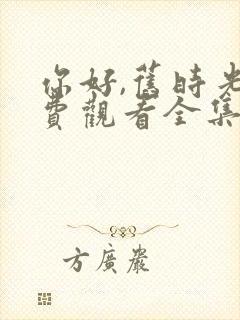 你好,舊時光
費觀看全集
方廣嚴